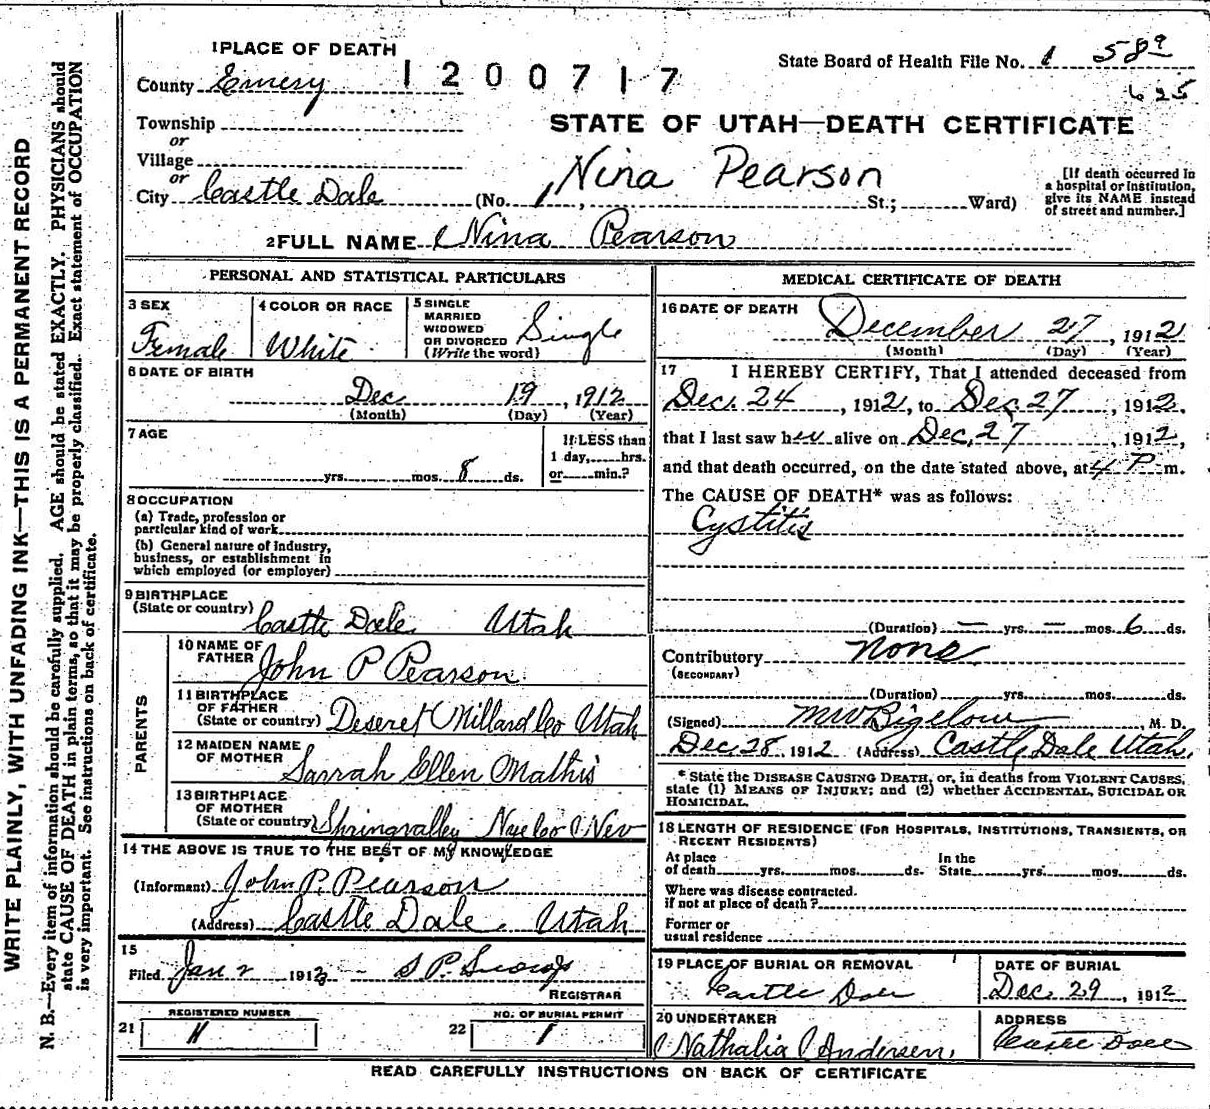 WRITE PLAINLY, WITH UNFADING INK—THIS IS A PERMANENT RECORD
N. B.—Every item of information should be carefully supplied. AGE should be stated EXACTLY. PHYSICIANS should
state CAUSE OF DEATH in plain terms, so that it may be properly classified. Exact statement of OCCUPATION
is very important. See instructions on back of certificate.
1 PLACE OF DEATH
County Emery
1200717
State Board of Health File No. 1 589
625
Township
or
Village
or
City Castle Dale
STATE OF UTAH—DEATH CERTIFICATE
Nina Pearson
(No. , St.; Ward)
[If death occurred in
a hospital or institution,
give its NAME instead
of street and number.]
2 FULL NAME Nina Pearson
PERSONAL AND STATISTICAL PARTICULARS
3 SEX
Female
4 COLOR OR RACE
White
5 SINGLE
MARRIED
WIDOWED
OR DIVORCED
(Write the word)
Single
6 DATE OF BIRTH
Dec 19, 1912
(Month) (Day) (Year)
7 AGE
yrs. mos. 8 ds.
If LESS than
1 day, hrs.
or min.?
8 OCCUPATION
(a) Trade, profession or
particular kind of work
(b) General nature of industry,
business, or establishment in
which employed (or employer)
9 BIRTHPLACE
(State or country) Castle Dale Utah
PARENTS
10 NAME OF
FATHER John P Pearson
11 BIRTHPLACE
OF FATHER
(State or country) Deseret Millard Co Utah
12 MAIDEN NAME
OF MOTHER Sarrah Ellen Mathis
13 BIRTHPLACE
OF MOTHER
(State or country) Shringvalley Nye Co Nev
14 THE ABOVE IS TRUE TO THE BEST OF MY KNOWLEDGE
(Informant) John P. Pearson
(Address) Castle Dale, Utah
15
Filed Jan 2 1913 S P.
REGISTRAR
21 REGISTERED NUMBER
11
22 NO. OF BURIAL PERMIT
1
MEDICAL CERTIFICATE OF DEATH
16 DATE OF DEATH
December 27, 1912
(Month) (Day) (Year)
17 I HEREBY CERTIFY, That I attended deceased from
Dec. 24, 1912, to Dec 27, 1912,
that I last saw her alive on Dec 27, 1912,
and that death occurred, on the date stated above, at 4 P m.
The CAUSE OF DEATH* was as follows:
Cystitis
(Duration) — yrs. — mos. 6 ds.
Contributory None
(SECONDARY)
(Duration) yrs. mos. ds.
(Signed) MW Bigelow M. D.
Dec 28, 1912 (Address) Castle Dale Utah.
* State the DISEASE CAUSING DEATH, or, in deaths from VIOLENT CAUSES,
state (1) MEANS OF INJURY; and (2) whether ACCIDENTAL, SUICIDAL OR
HOMICIDAL.
18 LENGTH OF RESIDENCE (FOR HOSPITALS, INSTITUTIONS, TRANSIENTS, OR
RECENT RESIDENTS)
At place
of death yrs. mos. ds.
In the
State yrs. mos. ds.
Where was disease contracted.
if not at place of death?
Former or
usual residence
19 PLACE OF BURIAL OR REMOVAL
Castle Dale
DATE OF BURIAL
Dec. 29, 1912
20 UNDERTAKER
Nathalia Andersen,
ADDRESS
Castle Dale
READ CAREFULLY INSTRUCTIONS ON BACK OF CERTIFICATE